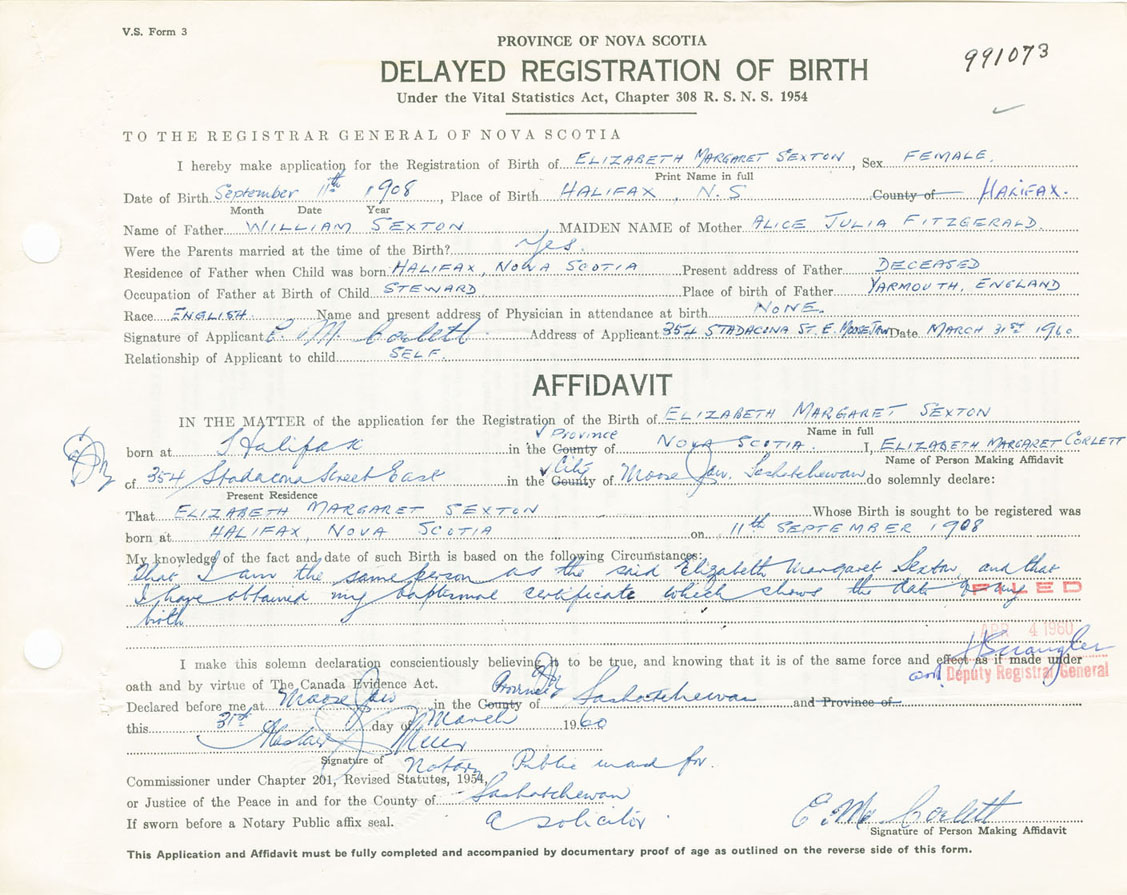 V.S. Form 3
PROVINCE OF NOVA SCOTIA
991073
DELAYED REGISTRATION OF BIRTH
Under the Vital Statistics Act, Chapter 308 R. S. N. S. 1954
TO THE REGISTRAR GENERAL OF NOVA SCOTIA
I hereby make application for the Registration of Birth of ELIZABETH MARGARET SEXTON, Sex FEMALE.
Print Name in full
Date of Birth September 11th 1908, Place of Birth HALIFAX, N.S County of HALIFAX.
Month Date Year
Name of Father WILLIAM SEXTON, MAIDEN NAME of Mother ALICE JULIA FITZGERALD.
Were the Parents married at the time of the Birth? Yes.
Residence of Father when Child was born HALIFAX, NOVA SCOTIA Present address of Father DECEASED
Occupation of Father at Birth of Child STEWARD Place of birth of Father YARMOUTH, ENGLAND
Race ENGLISH. Name and present address of Physician in attendance at birth NONE.
Signature of Applicant E. M. Corlett Address of Applicant 354 STADACONA ST. E. MOOSE JAW Date MARCH 31st 1960
Relationship of Applicant to child SELF.
AFFIDAVIT
IN THE MATTER of the application for the Registration of the Birth of ELIZABETH MARGARET SEXTON
Name in full
Province
born at Halifax in the County of NOVA SCOTIA I, ELIZABETH MARGARET CORLETT
Name of Person Making Affidavit
City
of 354 Stadacona Street East in the County of Moose Jaw, Saskatchewan do solemnly declare:
Present Residence
That ELIZABETH MARGARET SEXTON Whose Birth is sought to be registered was
born at HALIFAX, NOVA SCOTIA on 11th SEPTEMBER 1908
My knowledge of the fact and date of such Birth is based on the following Circumstances:
That I am the same person as the said Elizabeth Margaret Sexton, and that
I have obtained my baptismal certificate which shows the date of my
birth
FILED
APR 4 1960
I make this solemn declaration conscientiously believing it to be true, and knowing that it is of the same force and effect as if made under
Deputy Registrar General
oath and by virtue of The Canada Evidence Act.
Province
Declared before me at Moose Jaw in the County of Saskatchewan and Province of
this 31st day of March 1960
Signature of Notary Public in and for
Commissioner under Chapter 201, Revised Statutes, 1954,
or Justice of the Peace in and for the County of Saskatchewan
If sworn before a Notary Public affix seal. a solicitor.
E. M. Corlett
Signature of Person Making Affidavit
This Application and Affidavit must be fully completed and accompanied by documentary proof of age as outlined on the reverse side of this form.